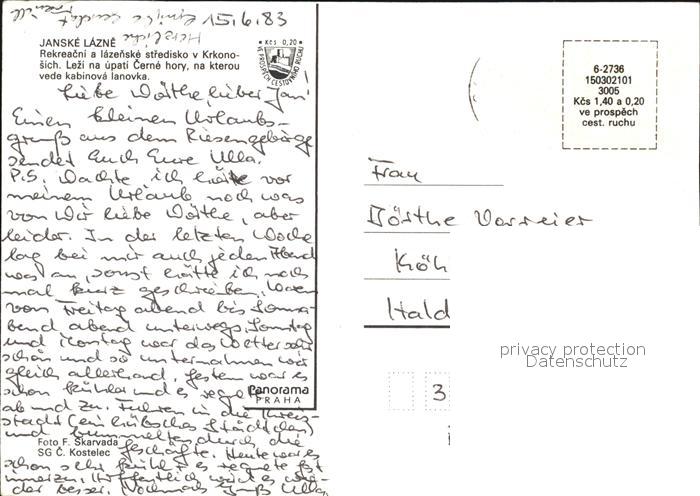 15.6.83
Herzliche Grüße sendet
JANSKÉ LÁZNĚ
Rekreační a lázeňské středisko v Krkono-
ších. Leží na úpatí Černé hory, na kterou
vede kabinová lanovka.
* Kčs 0,20 *
VE PROSPĚCH CESTOVNÍHO RUCHU
Liebe Dörthe, lieber Jan!
Einen kleinen Urlaubs-
gruß aus dem Riesengebirge
sendet Euch Eure Ulla.
P.S. Dachte ich hätte vor
meinem Urlaub noch was
von Dir liebe Dörthe, aber
leider. In der letzten Woche
lag bei mir auch jeden Abend
was an, sonst hätte ich noch
mal kurz geschrieben. Waren
von Freitag abend bis Sonna-
bend abend unterwegs. Sonntag
und Montag war das Wetter sehr
schön und so unternahmen wir
gleich allerhand. Gestern war es
schon kühler und es regnete
ab und zu. Fuhren in die Kreis-
stadt (ein hübsches Städtchen)
und bummelten durch die
Geschäfte. Heute war es
schon sehr kühl & es regnete fast
immerzu. Hoffentlich wird es wie-
der besser. Nochmals Gruß Ulla
Panorama
PRAHA
Foto F. Skarvada
SG Č. Kostelec
6-2736
150302101
3005
Kčs 1,40 a 0,20
ve prospěch
cest. ruchu
Frau
Dörthe Vorreier
Köh
Hald
3
privacy protection
Datenschutz